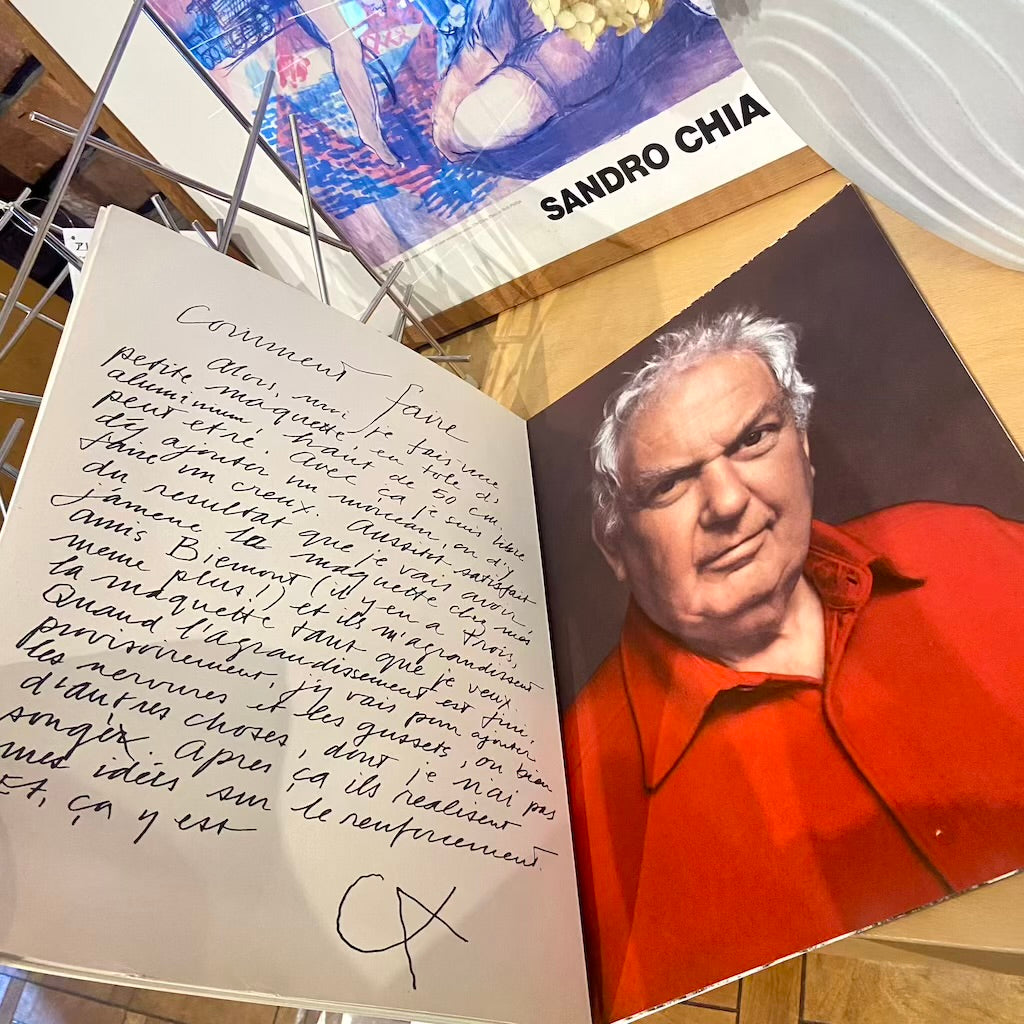 SANDRO CHIA
Comment faire
Alors, moi je fais une
petite maquette, en tole d'
aluminium, haut de 50 cm.
peut etre. Avec ça je suis libre
d'y ajouter un morceau, ou d'y
faire un creux. Aussitot satisfait
du resultat que je vais avoir,
j'amene la maquette chez mes
amis Biemont (il y en a trois,
meme plus!) et ils m'agrandissent
la maquette tant que je veux.
Quand l'agrandissement est fini,
provisoirement, j'y vais pour ajouter
les nervures et les gussets, ou bien
d'autres choses, dont je n'ai pas
songér. Apres ça ils realisent
mes idées sur le renforcement.
Et, ça y est
CA